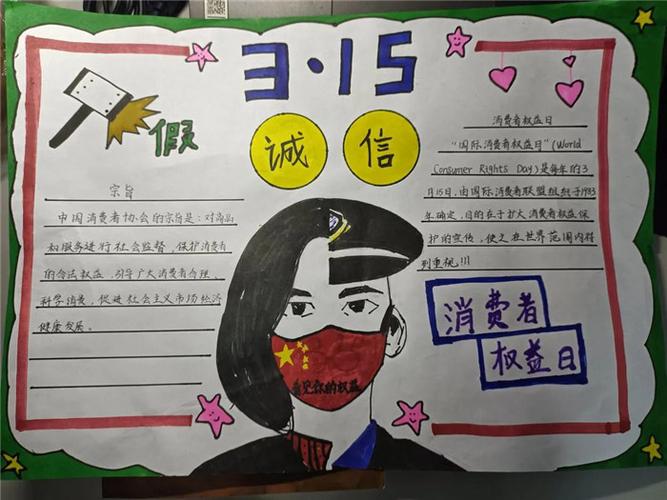 3·15
假
诚 信
宗旨
中国消费者协会的宗旨是：对商品
和服务进行社会监督，保护消费者
的合法权益，引导广大消费者合理、
科学消费，促进社会主义市场经济
健康发展。
消费者权益日
“国际消费者权益日”(World
Consumer Rights Day)是每年的3
月15日，由国际消费者联盟组织于1983
年确定，目的在于扩大消费者权益保
护的宣传，使之在世界范围内得
到重视!!!
消费者
权益日
你的权益